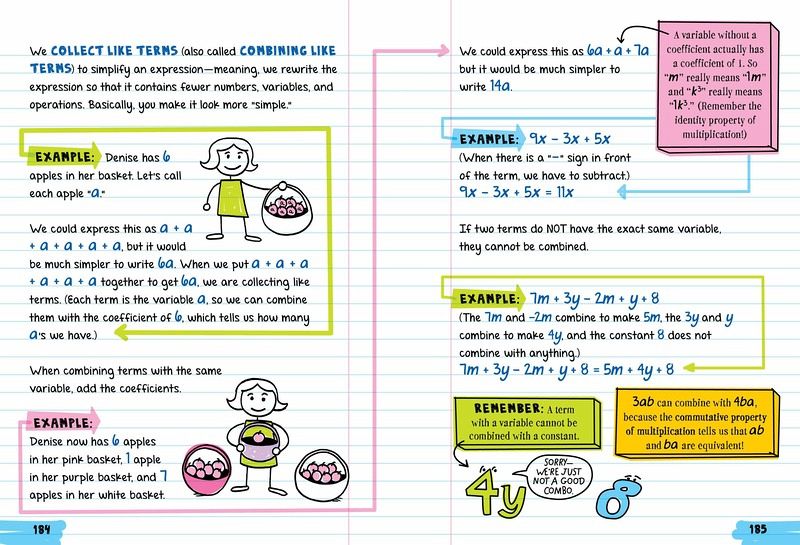 We COLLECT LIKE TERMS (also called COMBINING LIKE
TERMS) to simplify an expression—meaning, we rewrite the
expression so that it contains fewer numbers, variables, and
operations. Basically, you make it look more "simple."
EXAMPLE: Denise has 6
apples in her basket. Let's call
each apple "a."
We could express this as a + a
+ a + a + a + a, but it would
be much simpler to write 6a. When we put a + a + a
+ a + a + a together to get 6a, we are collecting like
terms. (Each term is the variable a, so we can combine
them with the coefficient of 6, which tells us how many
a's we have.)
When combining terms with the same
variable, add the coefficients.
EXAMPLE:
Denise now has 6 apples
in her pink basket, 1 apple
in her purple basket, and 7
apples in her white basket.
184
We could express this as 6a + a + 7a
but it would be much simpler to
write 14a.
A variable without a
coefficient actually has
a coefficient of 1. So
"m" really means "1m"
and "k³" really means
"1k³." (Remember the
identity property of
multiplication!)
EXAMPLE: 9x − 3x + 5x
(When there is a "−" sign in front
of the term, we have to subtract.)
9x − 3x + 5x = 11x
If two terms do NOT have the exact same variable,
they cannot be combined.
EXAMPLE: 7m + 3y − 2m + y + 8
(The 7m and −2m combine to make 5m, the 3y and y
combine to make 4y, and the constant 8 does not
combine with anything.)
7m + 3y − 2m + y + 8 = 5m + 4y + 8
REMEMBER: A term
with a variable cannot be
combined with a constant.
3ab can combine with 4ba,
because the commutative property
of multiplication tells us that ab
and ba are equivalent!
4y
SORRY—
WE'RE JUST
NOT A GOOD
COMBO.
8
185